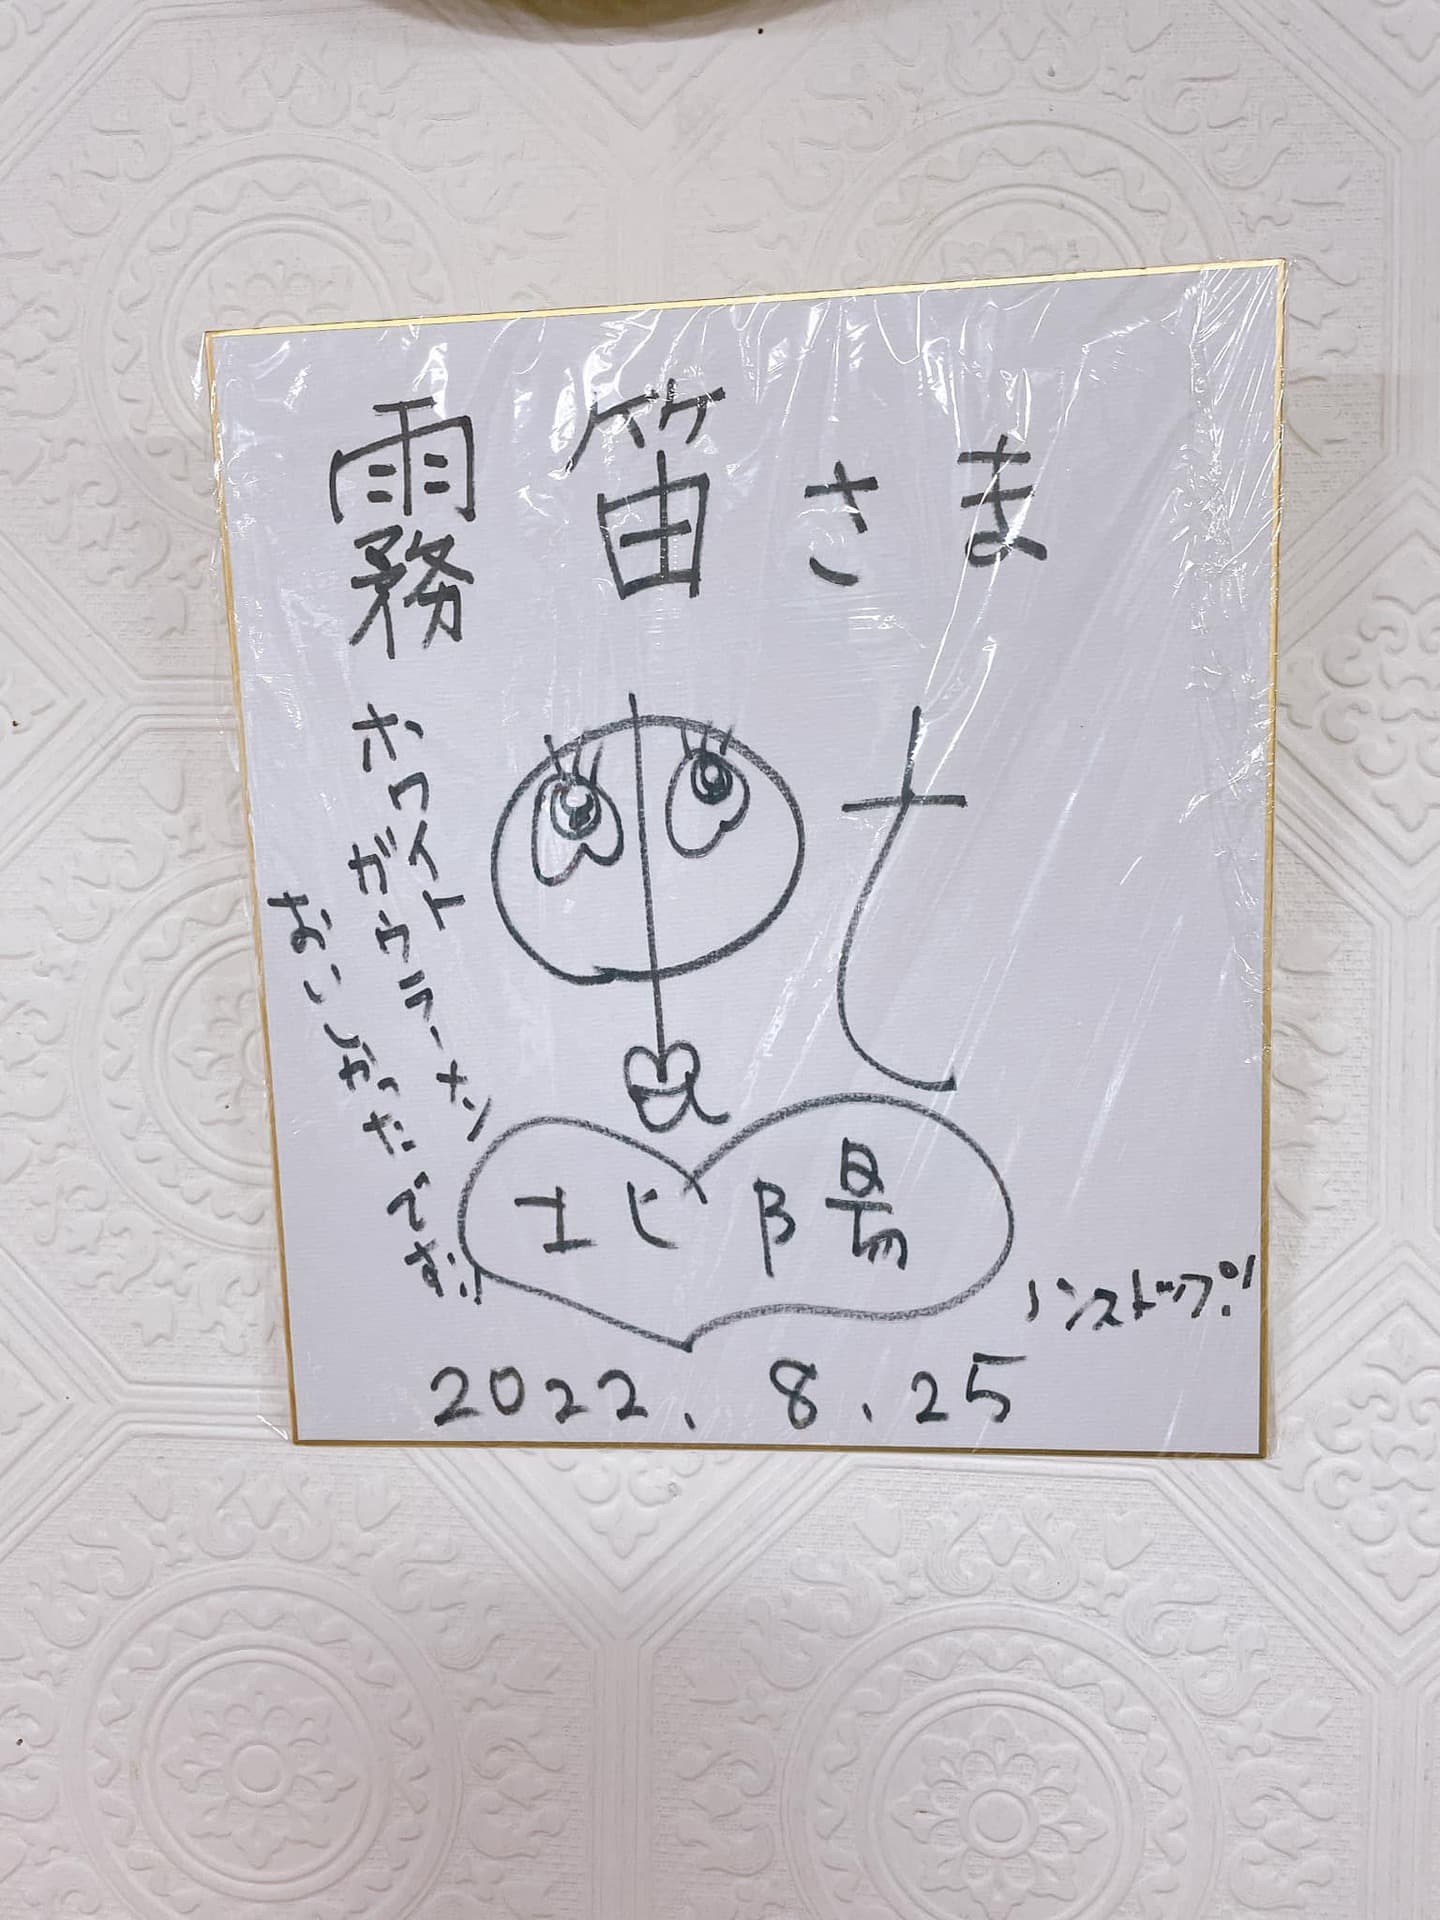 霧笛さま
ホワイト
ガウラーメン
おいしかったです!!
北陽
ノンストップ!
2022.8.25